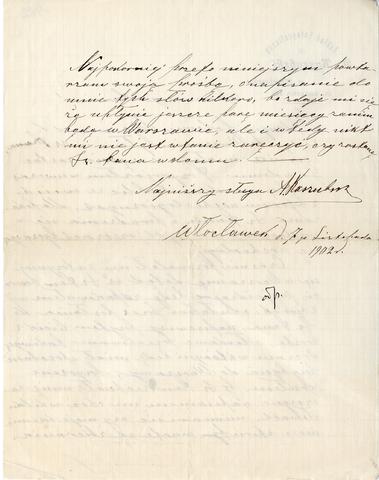 Najpokorniej przeto niniejszym powta-
rzam swoją prośbę, o napisanie do
mnie tych słów kilkoro, bo zdaje mi się
że upłynie jeszcze parę miesięcy zanim
będę w Warszawie, ale i wtedy nikt
mi nie jest w stanie zaręczyć, czy zastanę
Sz. Pana w domu.
Najniższy sługa
Włocławek d. 7go Listopada
1902 r.
odp.